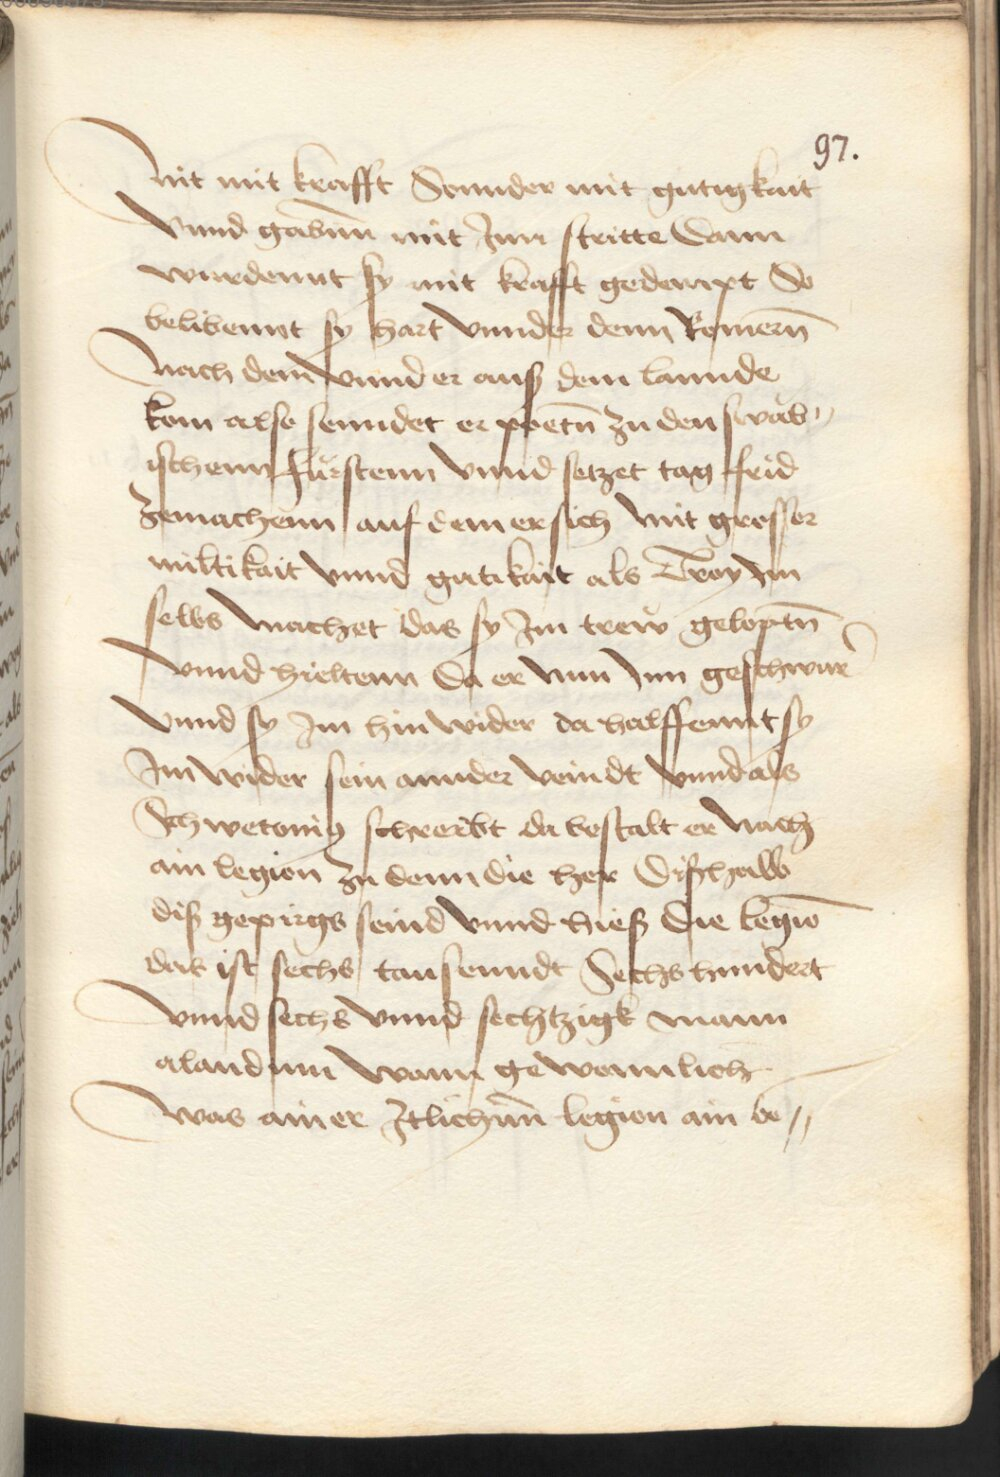 97.
Nit mit krafft Sonnder mit gütigkait
Vnnd gabenn mit Jnn stritte Dann
wurdennt sy mit krafft gedempt So
belibennt sy hart vnnder denn Romern̄
Nach dem Vnnd er auß dem lannde
kom also senndet er poetn̄ zu den swäb〃
ischenn fürstenn Vnnd setzet tag frid
Zemachenn auf dem er sich mit grosser
miltikait Vnnd gutikait als Troy Jm
selbs machet das sy Jm trew geloptn̄
Vnnd hieltenn Da er nun Jnn geschwur
Vnnd sy Jm hin wider da halffennt sy
Jm wider sein annder veindt Vnnd als
Schwetonig schreibt da bestalt er nach
ain legion zu denn die her Dißhalb
diß gepirgs seind Vnnd hieß Die legio
das ist sechs tausenndt Sechshundert
Vnnd sechs Vnnd sechtzigk mann
alandnn wann gewonnlich
Was ainer Jtlichnn̄ legion ain be〃